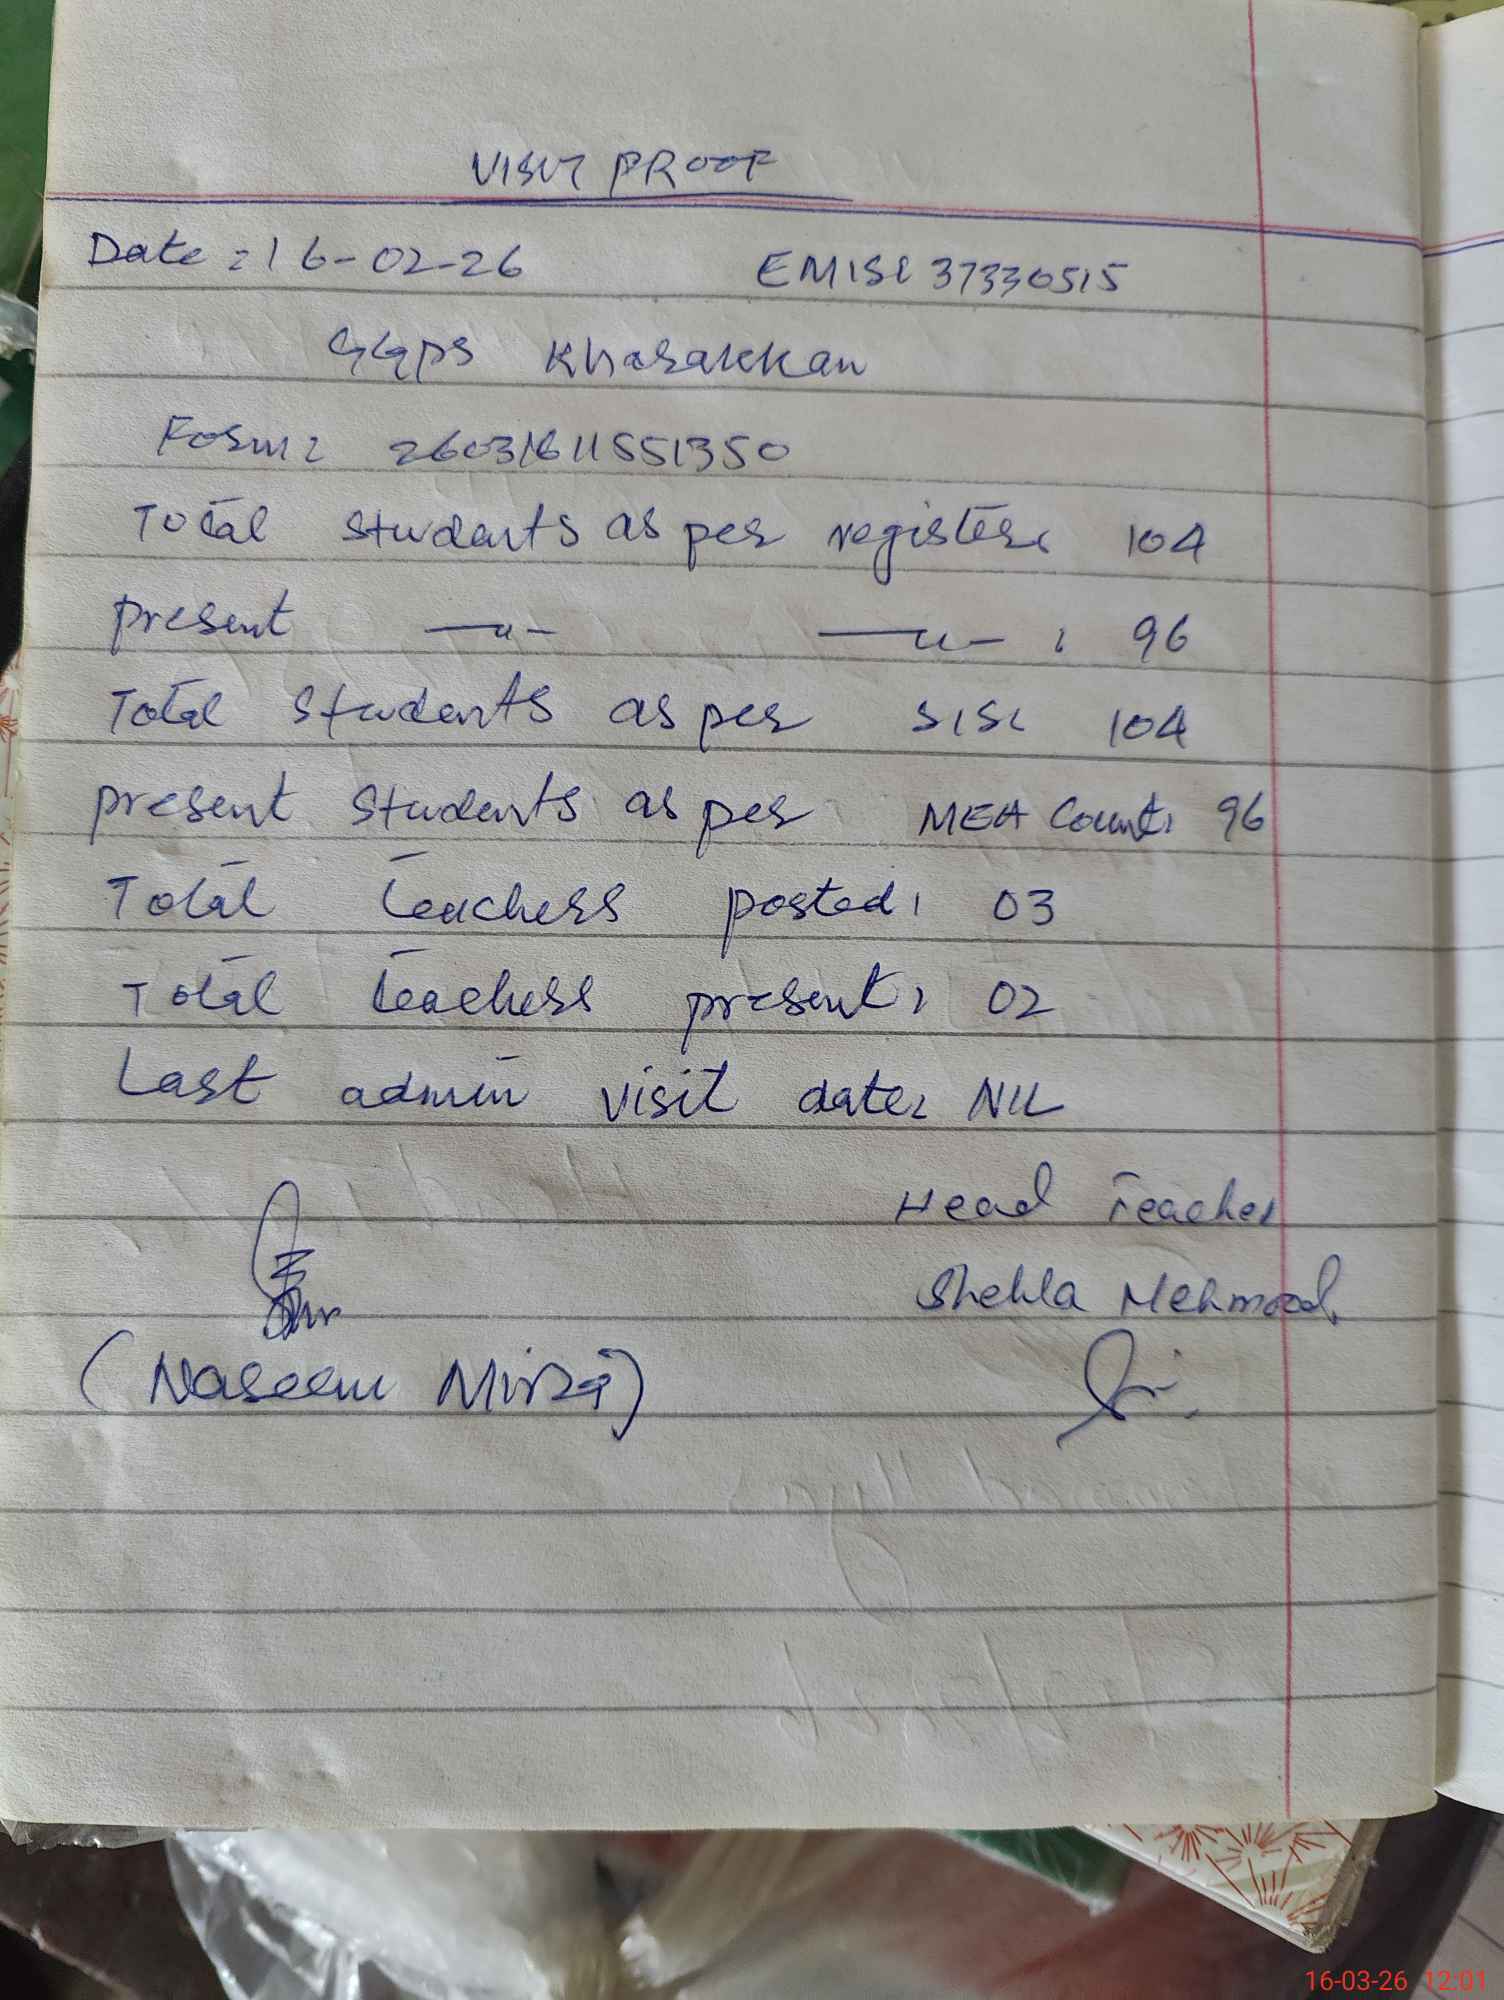 VISIT PROOF
Date: 16-02-26 EMIS: 37330515
GGPS Kharakkan
Form: 26031611551350
Total students as per register: 104
present —"— —"— : 96
Total students as per SIS: 104
present students as per MEA Count: 96
Total teachers posted: 03
Total teachers present: 02
Last admin visit date: NIL
Head Teacher
Shehla Mehmood
(Naseem Mirza)
16-03-26 12:01